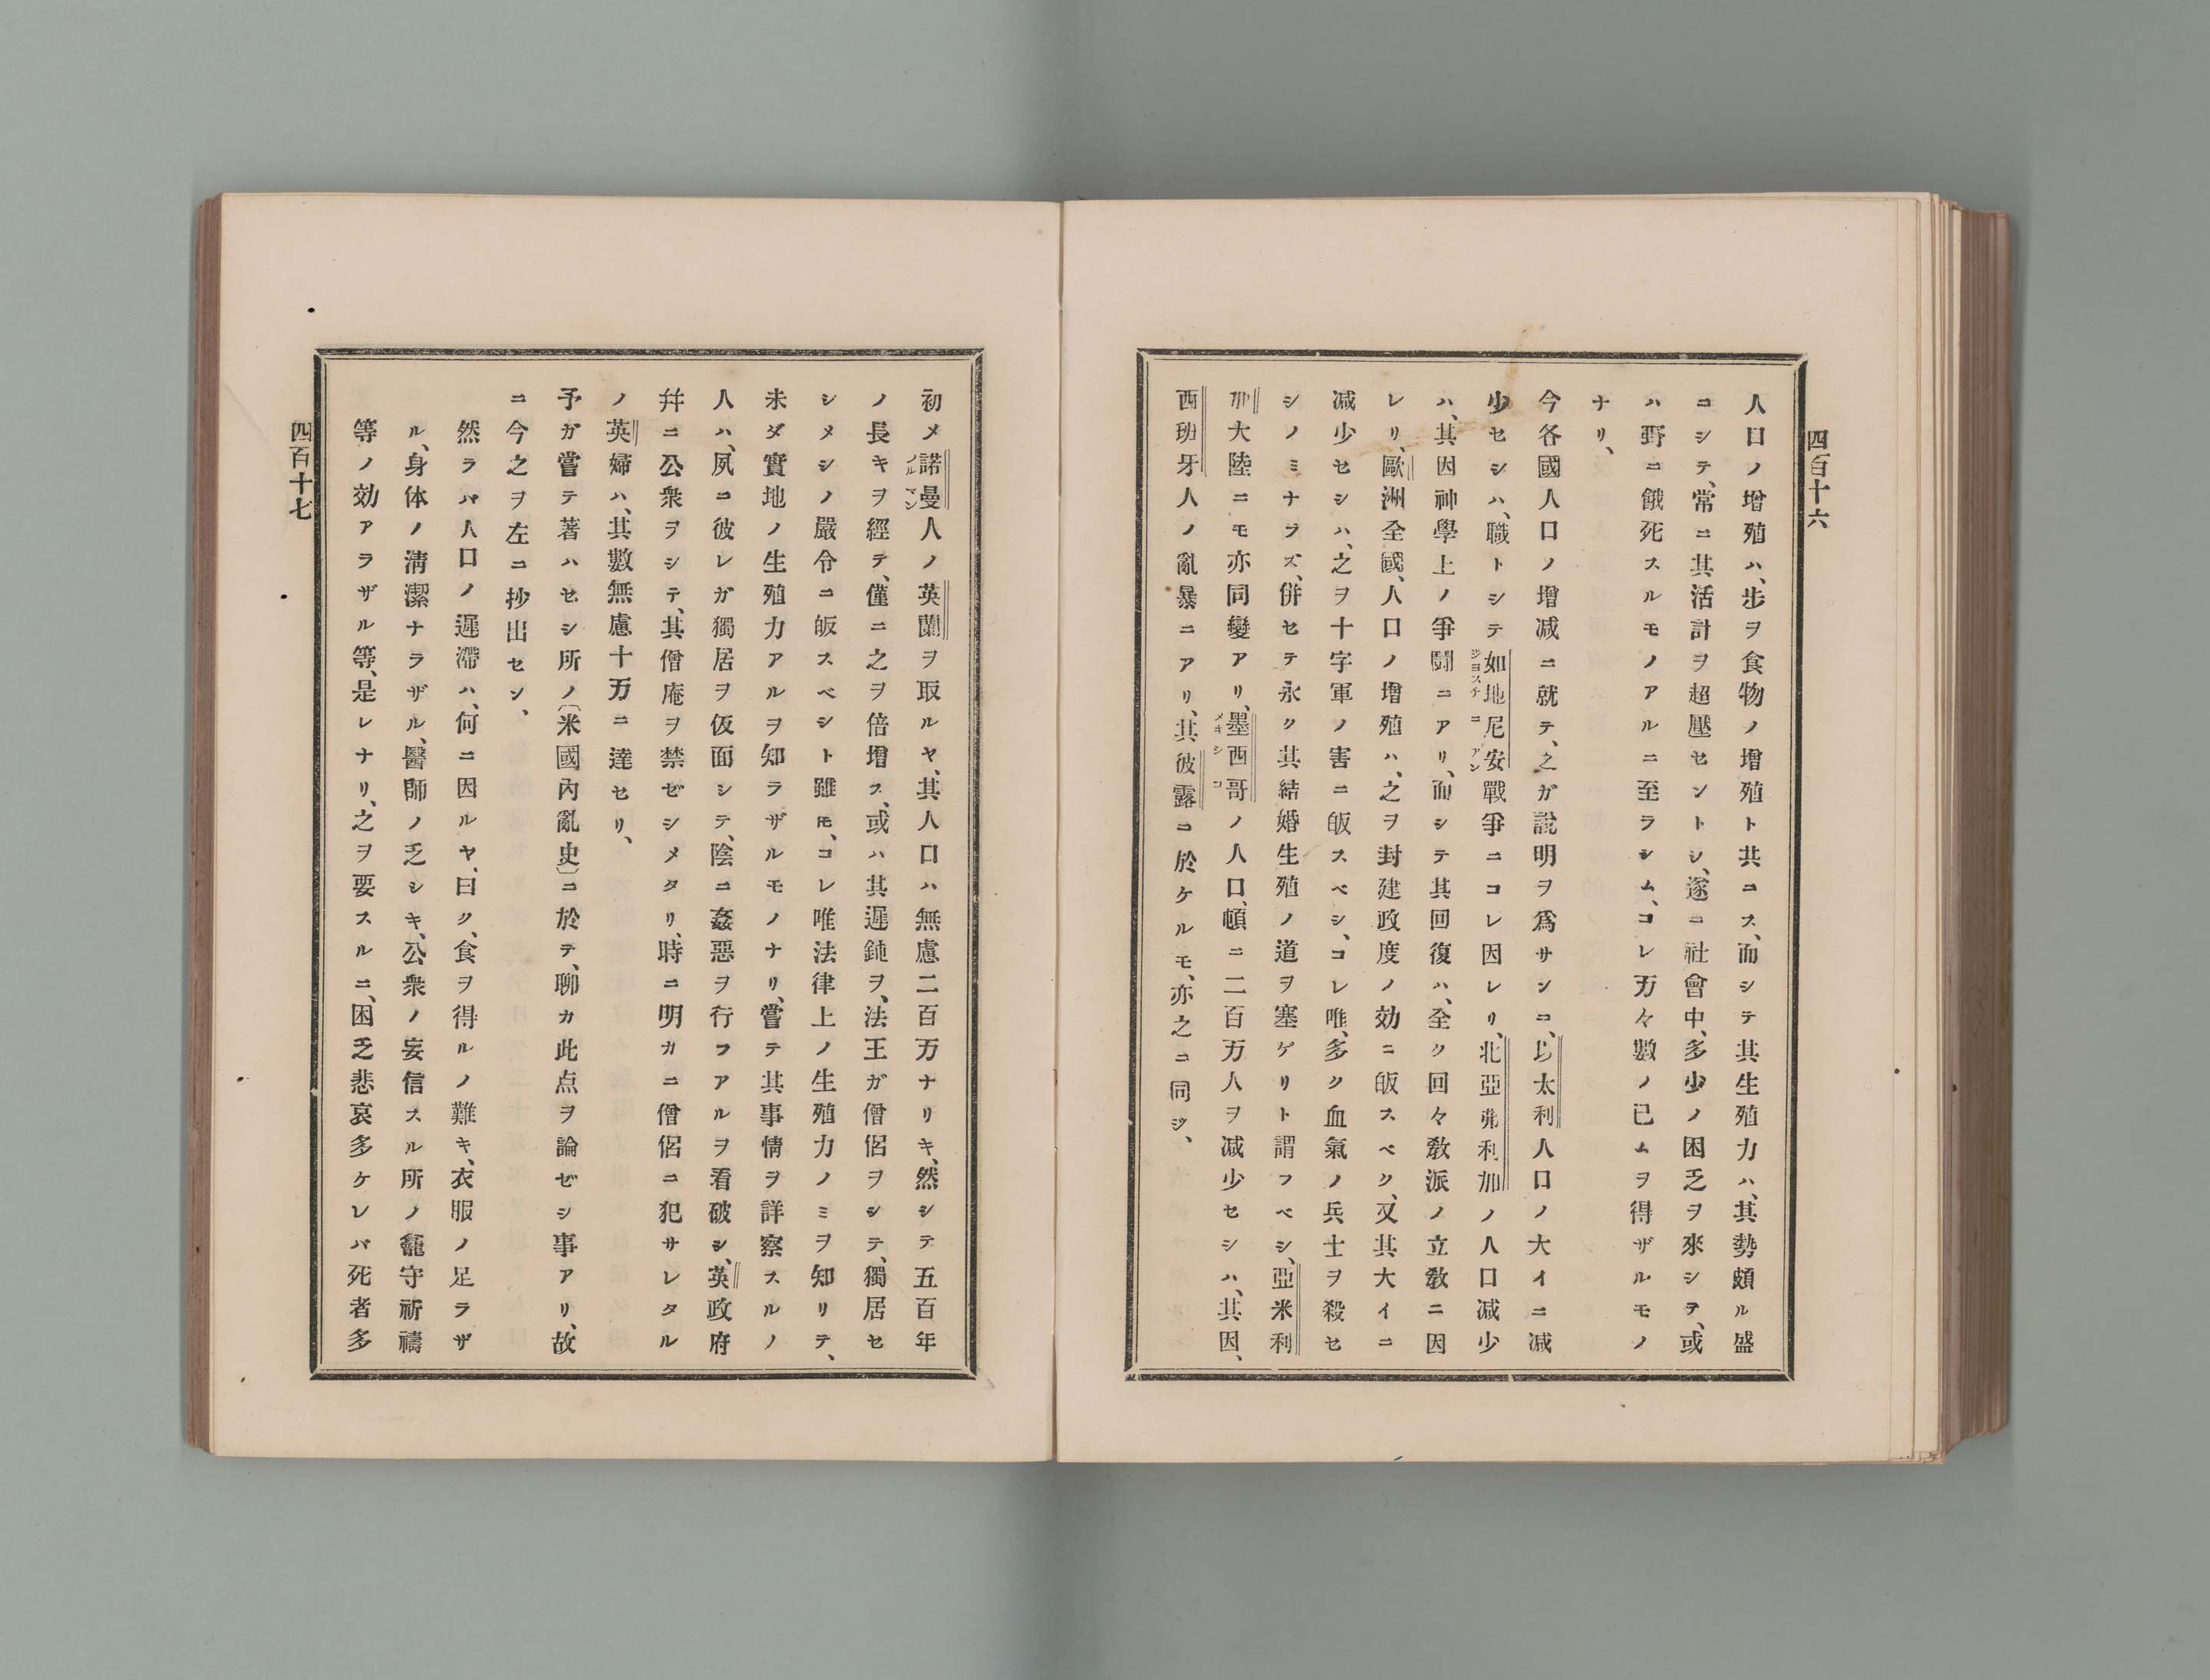 四百十六
人口ノ增殖ハ、步ヲ食物ノ增殖ト共ニス、而シテ其生殖力ハ、其勢頗ル盛
ニシテ、常ニ其活計ヲ超壓セントシ、遂ニ社會中、多少ノ困乏ヲ來シテ、或
ハ野ニ餓死スルモノアルニ至ラシム、コレ万々數ノ已ムヲ得ザルモノ
ナリ、
今各國人口ノ增减ニ就テ、之ガ說明ヲ爲サンニ、以太利人口ノ大イニ减
少セシハ、職トシテ如地尼安戰爭ニコレ因レリ、北亞弗利加ノ人口减少
ジヨスチニアン
ハ、其因神學上ノ爭鬪ニアリ、而シテ其回復ハ、全ク回々敎派ノ立敎ニ因
レリ、歐洲全國、人口ノ增殖ハ、之ヲ封建政度ノ効ニ皈スベク、又其大イニ
减少セシハ、之ヲ十字軍ノ害ニ皈スベシ、コレ唯、多ク血氣ノ兵士ヲ殺セ
シノミナラズ、併セテ永ク其結婚生殖ノ道ヲ塞ゲリト謂フベシ、亞米利
加大陸ニモ亦同變アリ、墨西哥ノ人口、頓ニ二百万人ヲ减少セシハ、其因、
メキシコ
西班牙人ノ亂暴ニアリ、其彼露ニ於ケルモ、亦之ニ同ジ、
初メ諾曼人ノ英蘭ヲ取ルヤ、其人口ハ無慮二百万ナリキ、然シテ五百年
ノルマン
ノ長キヲ經テ、僅ニ之ヲ倍增ス、或ハ其遲鈍ヲ、法王ガ僧侶ヲシテ、獨居セ
シメシノ嚴令ニ皈スベシト雖𪜈、コレ唯法律上ノ生殖力ノミヲ知リテ、
未ダ實地ノ生殖力アルヲ知ラザルモノナリ、嘗テ其事情ヲ詳察スルノ
人ハ、夙ニ彼レガ獨居ヲ仮面シテ、陰ニ姦惡ヲ行フアルヲ看破シ、英政府
幷ニ公衆ヲシテ、其僧庵ヲ禁ゼシメタリ、時ニ明カニ僧侶ニ犯サレタル
ノ英婦ハ、其數無慮十万ニ達セリ、
予ガ嘗テ著ハセシ所ノ〔米國內亂史〕ニ於テ、聊カ此点ヲ論ゼシ事アリ、故
ニ今之ヲ左ニ抄出セン、
然ラバ人口ノ遲滯ハ、何ニ因ルヤ、曰ク、食ヲ得ルノ難キ、衣服ノ足ラザ
ル、身体ノ淸潔ナラザル、醫師ノ乏シキ、公衆ノ妄信スル所ノ龕守祈禱
等ノ効アラザル等、是レナリ、之ヲ要スルニ、困乏悲哀多ケレバ死者多
四百十七